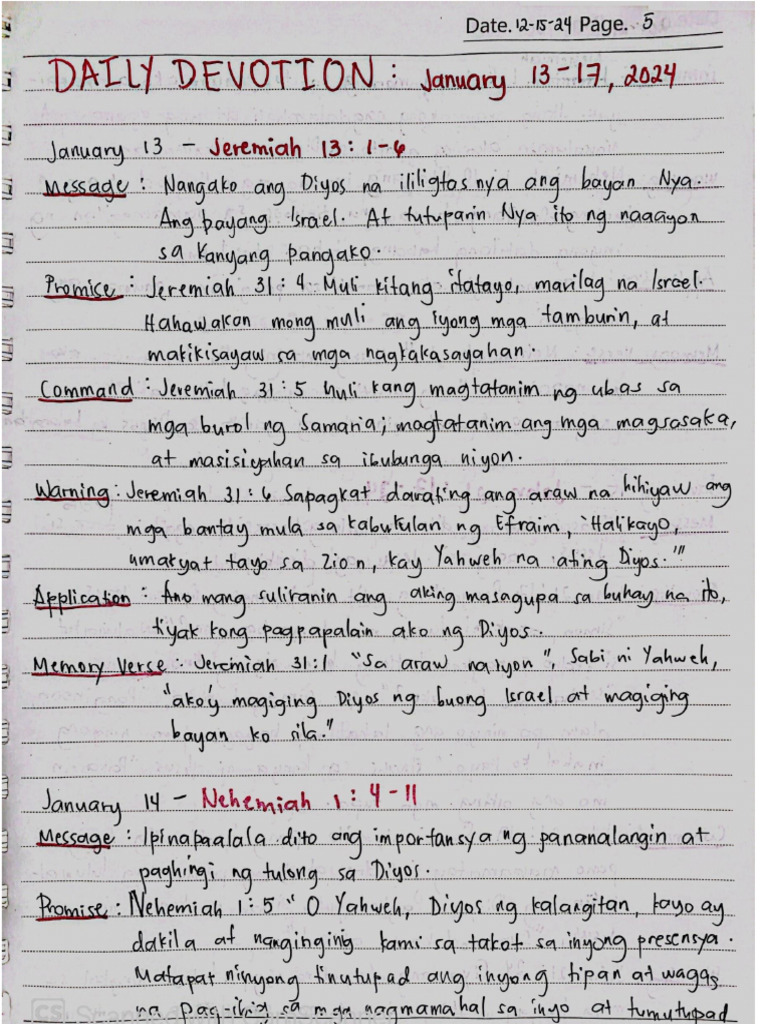 Date. 12-15-24 Page. 5
DAILY DEVOTION : January 13-17, 2024
January 13 - Jeremiah 13 : 1-6
Message : Nangako ang Diyos na ililigtas nya ang bayan Nya.
Ang bayang Israel. At tutuparin Nya ito ng naaayon
sa Kanyang pangako.
Promise : Jeremiah 31 : 4 Muli kitang itatayo, marilag na Israel.
Hahawakan mong muli ang iyong mga tamburin, at
makikisayaw sa mga nagkakasayahan.
Command : Jeremiah 31 : 5 Muli kang magtatanim ng ubas sa
mga burol ng Samaria; magtatanim ang mga magsasaka,
at masisiyahan sa ibubunga niyon.
Warning : Jeremiah 31 : 6 Sapagkat darating ang araw na hihiyaw ang
mga bantay mula sa kabukulan ng Efraim, 'Halikayo,
umakyat tayo sa Zion, kay Yahweh na ating Diyos.'"
Application : Ano mang suliranin ang aking masagupa sa buhay na ito,
tiyak kong pagpapalain ako ng Diyos.
Memory Verse : Jeremiah 31:1 "Sa araw na iyon", Sabi ni Yahweh,
"ako'y magiging Diyos ng buong Israel at magiging
bayan ko sila."
January 14 - Nehemiah 1 : 4-11
Message : Ipinapaalala dito ang importansya ng pananalangin at
paghingi ng tulong sa Diyos.
Promise : Nehemiah 1:5 " O Yahweh, Diyos ng kalangitan, kayo ay
dakila at nanginginig kami sa takot sa inyong presensya.
Matapat ninyong tinutupad ang inyong tipan at wagas
na pag-ibig sa mga nagmamahal sa inyo at tumutupad
CS